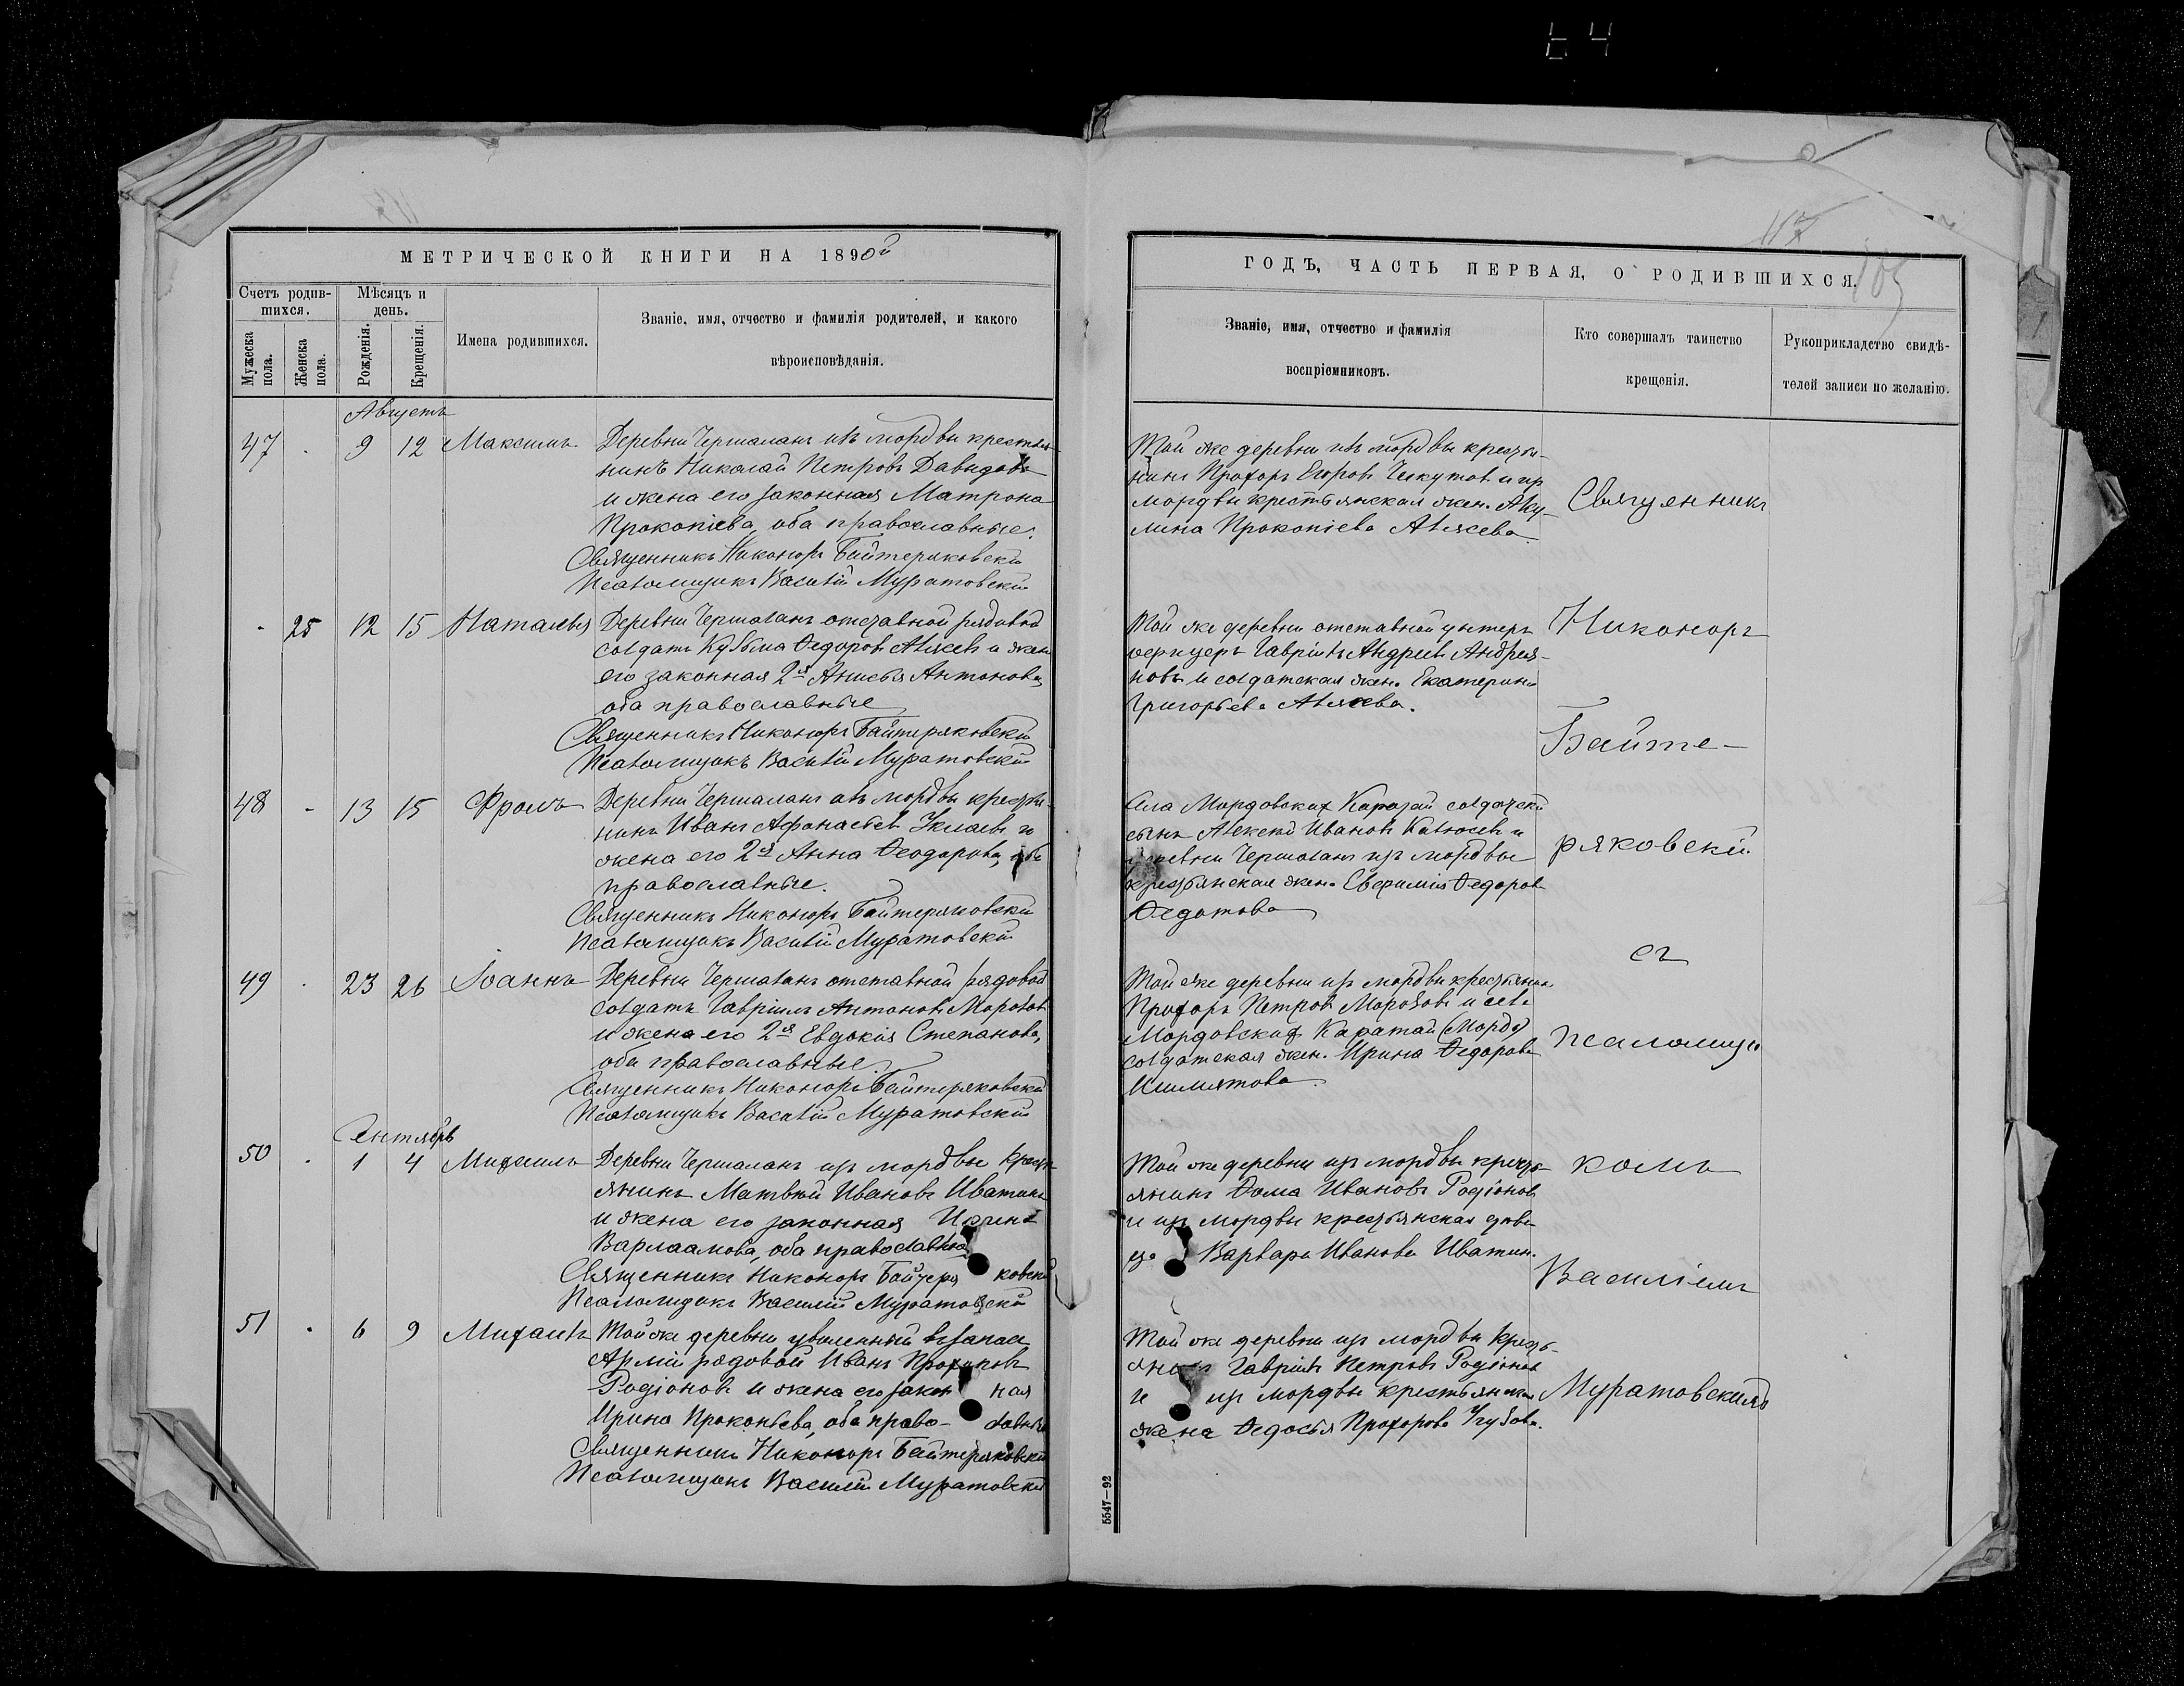 64
117
105
МЕТРИЧЕСКОЙ КНИГИ НА 1890й
Счетъ родив-
шихся.
Мѣсяцъ и
день.
Мужеска
пола.
Женска
пола.
Рожденія.
Крещенія.
Имена родившихся.
Званіе, имя, отчество и фамилія родителей, и какого
вѣроисповѣданія.
Августъ
47 9 12 Максимъ
Деревни изъ мордвы крестья-
нинъ Николай Петровъ Давыдовъ
и жена его законная Матрона
Прокопіева, оба православные.
Священникъ Никоноръ Байтеряковскій
Псаломщикъ Василій Муратовскій
25 12 15 Наталья
Деревни отставной рядовой
солдатъ Кузьма Федоровъ и жена
его законная 2я Анисья Антонова,
оба православные
Священникъ Никоноръ Байтеряковскій
Псаломщикъ Василій Муратовскій
48 - 13 15 Фролъ
Деревни изъ мордвы крестья-
нинъ Иванъ Афонасьев и
жена его 2я Анна Феодорова, оба
православные.
Священникъ Никоноръ Байтеряковскій
Псаломщикъ Василій Муратовскій
49 23 26 Іоаннъ
Деревни отставной рядовой
солдатъ Гавріилъ Антоновъ Морозовъ
и жена его 2я Евдокія Степанова,
оба православные.
Священникъ Никоноръ Байтеряковскій
Псаломщикъ Василій Муратовскій
Сентябрь
50 1 4 Михаилъ
Деревни изъ мордвы кресть-
янинъ Матвей Ивановъ Иватинъ
и жена его законная Ирина
Варлаамова, оба православно
Священникъ Никоноръ Байтеряковскій
Псаломщикъ Василій Муратовскій
51 6 9 Михаилъ
Той же деревни уволенный в запас
Арміи рядовой Иванъ
Родіоновъ и жена его законная
Ирина Прокопьева, оба православные
Священникъ Никоноръ Байтеряковскій
Псаломщикъ Василій Муратовскій
ГОДЪ, ЧАСТЬ ПЕРВАЯ, О РОДИВШИХСЯ.
Званіе, имя, отчество и фамилія
воспріемниковъ.
Кто совершалъ таинство
крещенія.
Рукоприкладство свидѣ-
телей записи по желанію.
Той же деревни изъ мордвы крестья-
нинъ Прохоръ Егоровъ и из
мордвы крестьянская жен. Аку-
лина Прокопіева
Той же деревни отставной унтеръ
офицеръ Гавріилъ Андреевъ Андрея-
новъ и солдатская жена Екатерина
Григорьева
Села Мордовскихъ Каратай солдатскій
сынъ Алексей Ивановъ и
деревни изъ мордвы
крестьянская жена Евфимія Федорова
Федотова
Той же деревни изъ мордвы крестьянинъ
Прохоръ Петровъ Морозовъ и села
Мордовскихъ Каратай (Морд.)
солдатская жен. Ирина Федорова
Той же деревни изъ мордвы кресть-
янинъ Фома Ивановъ Родіоновъ
и изъ мордвы крестьянская вдова
Варвара Иванова Иватин.
Той же деревни изъ мордвы кресть-
янинъ Гавріилъ Петровъ Родіоновъ
и изъ мордвы крестьянская
жена Федосья Прохорова
Священникъ
Никоноръ
Байте-
ряковскій
съ
псаломщи
комъ
Василіемъ
Муратовскимъ
5547—92